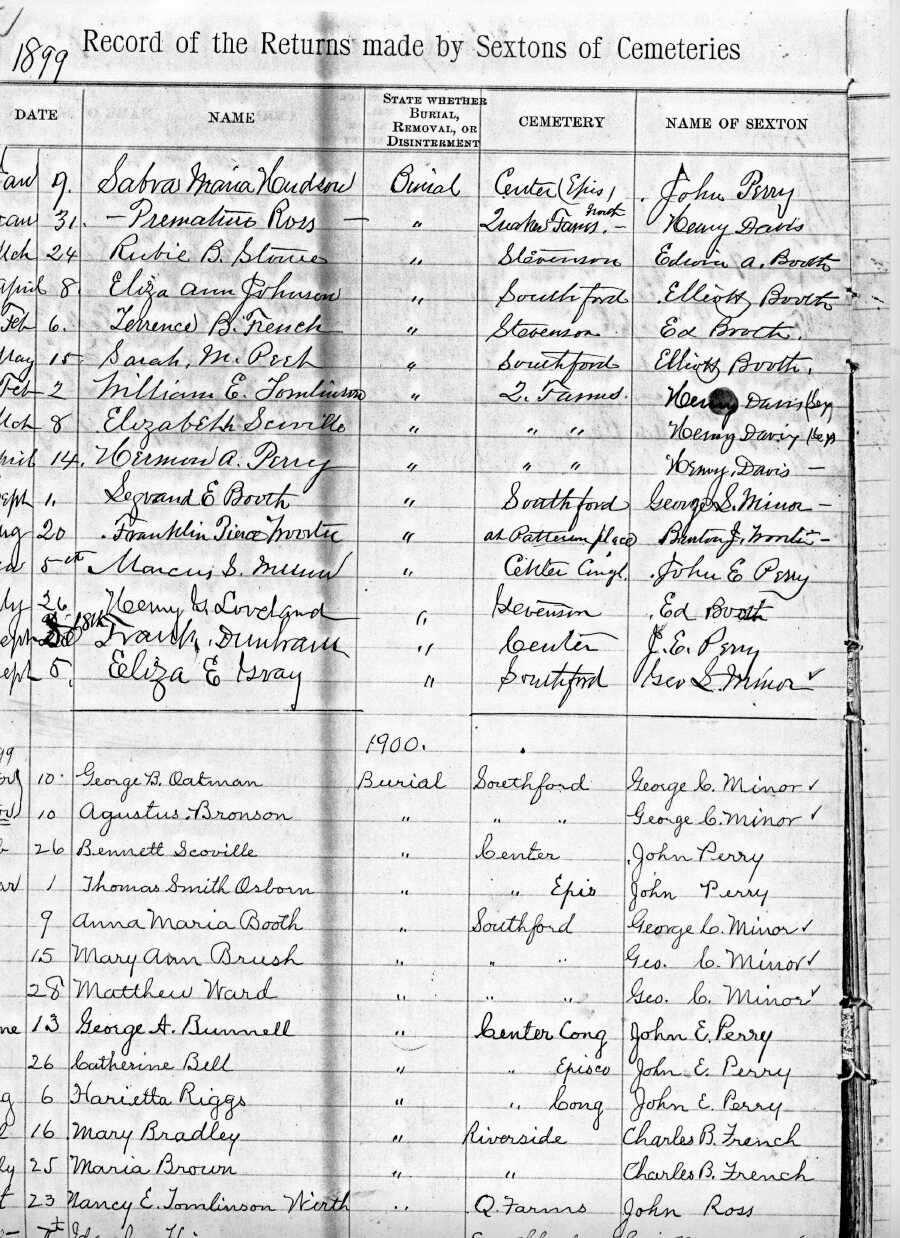 1899
Record of the Returns made by Sextons of Cemeteries
DATE NAME STATE WHETHER BURIAL, REMOVAL, OR DISINTERMENT CEMETERY NAME OF SEXTON
Jan 9. Sabra Maria Hudson Burial Center (Epis) John Perry
Jan 31. – Premature Ross – " Quaker Farms. North – Henry Davis
Mch 24 Rubie B. Stone " Stevenson Edwin A. Booth
April 8 Eliza Ann Johnson " Southford Elliott Booth
Feb 6. Terrence B. French " Stevenson Ed Booth.
May 15 Sarah, M. Peck " Southford Elliott Booth.
Feb 2 William E. Tomlinson " Q. Farms. Henry Davis
Mch 8 Elizabeth Scoville " " " Henry Davis
April 14. Hermon A. Perry " " " Henry. Davis –
Sept 1. E Booth " Southford George S. Minor –
ug 20 Franklin Pierce Wooster " at place –
5th Marcus S. " Center Congl. John E Perry
ly 26 Henry G. Loveland " Stevenson Ed Booth
Sept 18th Frank, Dunham " Center J. E. Perry
Sept 5, Eliza E Gray " Southford Geo S. Minor ✓
1900.
99
10. George B. Oatman Burial Southford George C. Minor ✓
10 Agustus. Bronson " " " George C. Minor ✓
26 Bennett Scoville " Center John Perry
ar 1 Thomas Smith Osborn " " Epis John Perry
9 Anna Maria Booth " Southford George C. Minor ✓
15 Mary Ann Brush " " " Geo. C. Minor ✓
28 Matthew Ward " " " Geo. C. Minor ✓
ne 13 George A. Bunnell " Center Cong John E. Perry
26 Catherine Bell " " Episco John E. Perry
g 6 Harietta Riggs " " Cong John E. Perry
16 Mary Bradley " Riverside Charles B. French
ly 25 Maria Brown " " Charles B. French
t 23 Nancy E. Tomlinson Wirth " Q. Farms John Ross